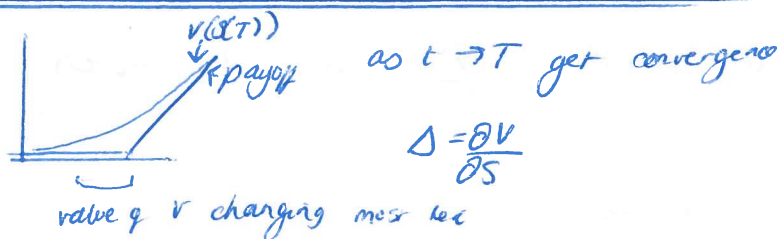 V(S(T))
payoff
as t → T get convergence
Δ = ∂V/∂S
value of V changing most here